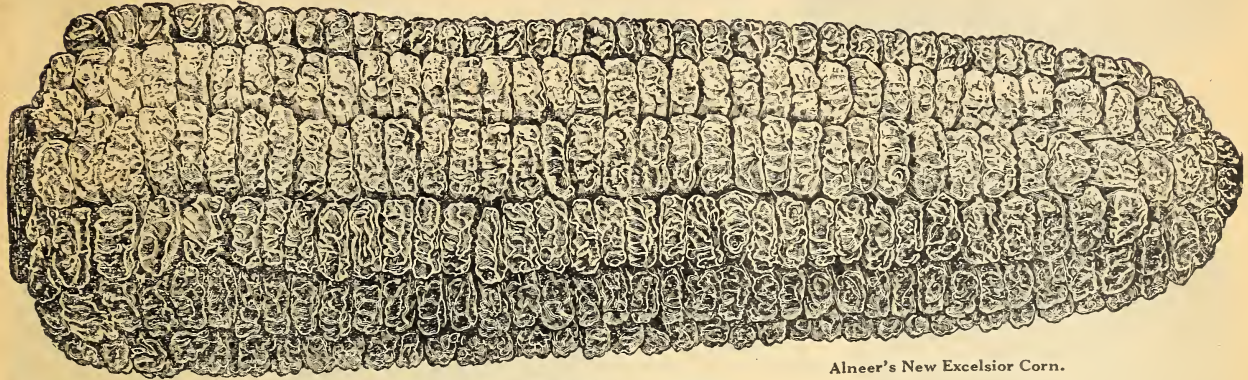 Alneer's New Excelsior Corn.